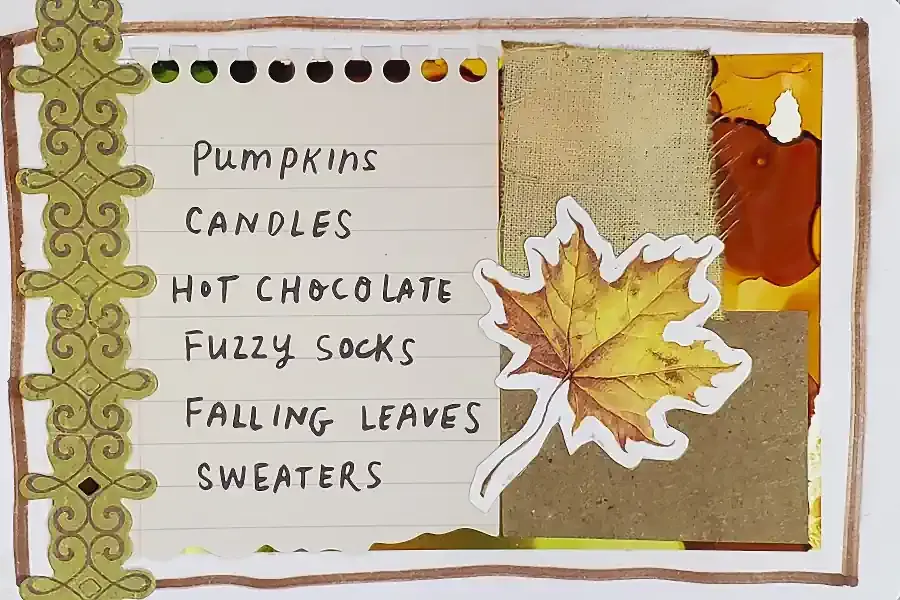 Pumpkins
CANDLES
HOT CHOCOLATE
FUZZY SOCKS
FALLING LEAVES
SWEATERS